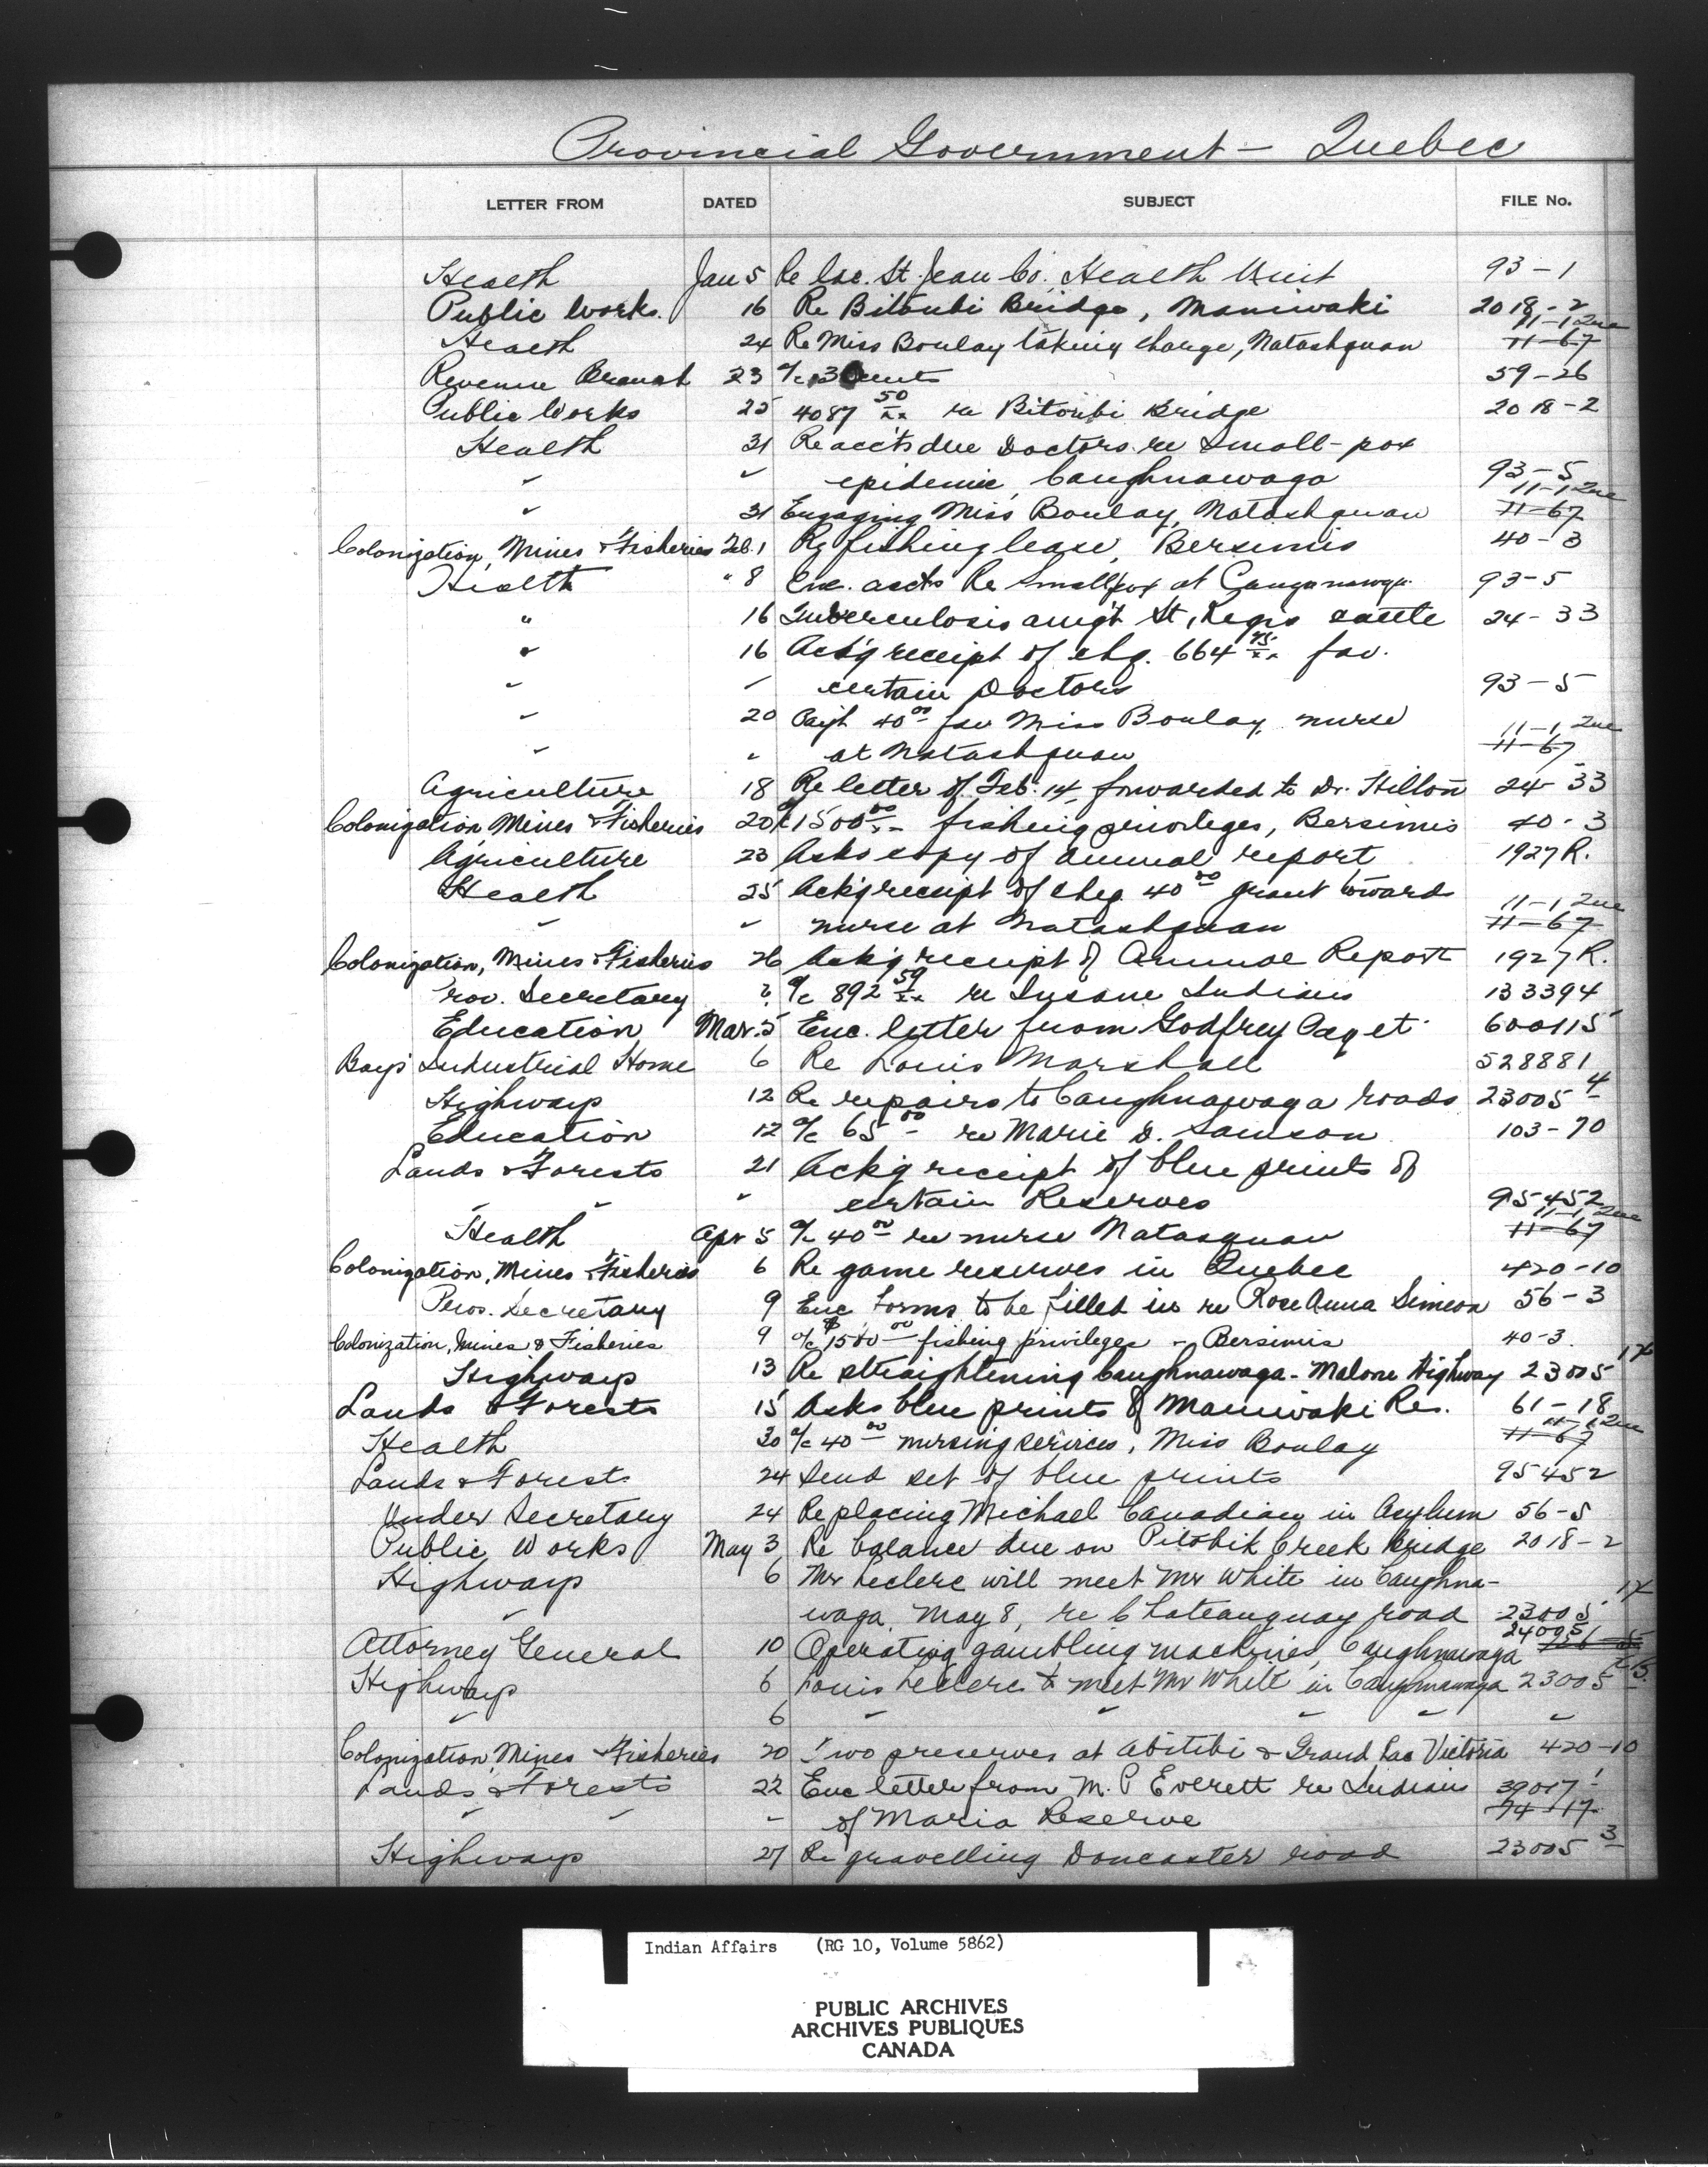 Provincial Government - Quebec
LETTER FROM DATED SUBJECT FILE No.
Health Jan 5 Re Lac. St. Jean Co. Health Unit 93-1
Public Works. 16 Re Bitoubi Bridge, Maniwaki 2018-2
11-1-2
Health 24 Re Miss Boulay taking charge, Natashquan 11-67
Revenue Branch 23 a/c 3 cents 59-26
Public Works 25 4087 50/xx re Bitoubi Bridge 2018-2
Health 31 Re acc'ts due Doctors re Small-pox
" " epidemic, Caughnawaga 93-5
11-1-2
" 31 Engaging Miss Boulay, Natashquan 11-67
Colonization, Mines & Fisheries Feb. 1 Re fishing lease, Bersimis 40-3
Health " 8 Enc. accts Re Smallpox at 93-5
" 16 Tuberculosis am'gt St. Regis cattle 24-33
" 16 Ack'g receipt of chq. 664 75/xx fav.
" " certain Doctors 93-5
" 20 Paym't 40 00 fav Miss Boulay, nurse 11-1-2
" " at Natashquan 11-67
Agriculture 18 Re letter of Feb. 14, forwarded to Dr. Hilton 24-33
Colonization Mines & Fisheries 20 a/c 1500 00/xx fishing privileges, Bersimis 40-3
Agriculture 23 Asks copy of annual report 1927 R.
Health 25 Ack'g receipt of cheq. 40 00 grant toward 11-1-2
" " nurse at Natashquan 11-67
Colonization, Mines & Fisheries 26 Ack'g receipt of Annual Report 1927 R.
Prov. Secretary ? a/c 892 59/xx re Insane Indians 133394
Education Mar. 5 Enc. letter from Godfrey Paget 600115
Boys' Industrial Home 6 Re Louis Marshall 528881
Highways 12 Re repairs to Caughnawaga roads 23005-4
Education 12 a/c 65 00 re Marie D. Samson 103-70
Lands & Forests 21 Ack'g receipt of blue prints of
" " " certain Reserves 95452
11-1-2
Health Apr 5 a/c 40 00 re nurse Natasquan 11-67
Colonization, Mines & Fisheries 6 Re game reserves in Quebec 420-10
Prov. Secretary 9 Enc forms to be filled in re Rose Anna Simeon 56-3
Colonization, Mines & Fisheries 9 a/c $1500 00 fishing privileges - Bersimis 40-3
Highways 13 Re straightening Caughnawaga-Malone Highway 23005 17
Lands & Forests 15 Asks blue prints of Maniwaki Res. 61-18
11-1-2
Health 20 a/c 40 00 nursing services, Miss Boulay 11-67
Lands & Forests 24 Send set of blue prints 95452
Under Secretary 24 Re placing Michael Canadian in Asylum 56-5
Public Works May 3 Re balance due on Pitobik Creek Bridge 2018-2
Highways 6 Mr Leclerc will meet Mr White in Caughna-
" waga, May 8, re Chateauguay road 23005 17
24095
Attorney General 10 Operating gambling machines, Caughnawaga
Highways 6 Louis Leclerc to meet Mr White in Caughnawaga 23005
" 6 " " " " "
Colonization, Mines & Fisheries 20 Two preserves at Abitibi & Grand Lac Victoria 420-10
Lands & Forests 22 Enc letter from M. P Everett re Indians 39017-1
" " " of Maria Reserve 74-17
Highways 27 Re gravelling Doncaster road 23005-3
Indian Affairs (RG 10, Volume 5862)
PUBLIC ARCHIVES
ARCHIVES PUBLIQUES
CANADA